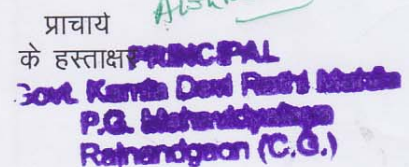 प्राचार्य
के हस्ताक्षर PRINCIPAL
Govt. Kamla Devi Rathi Mahila
P.G. Mahavidyalaya
Rajnandgaon (C.G.)